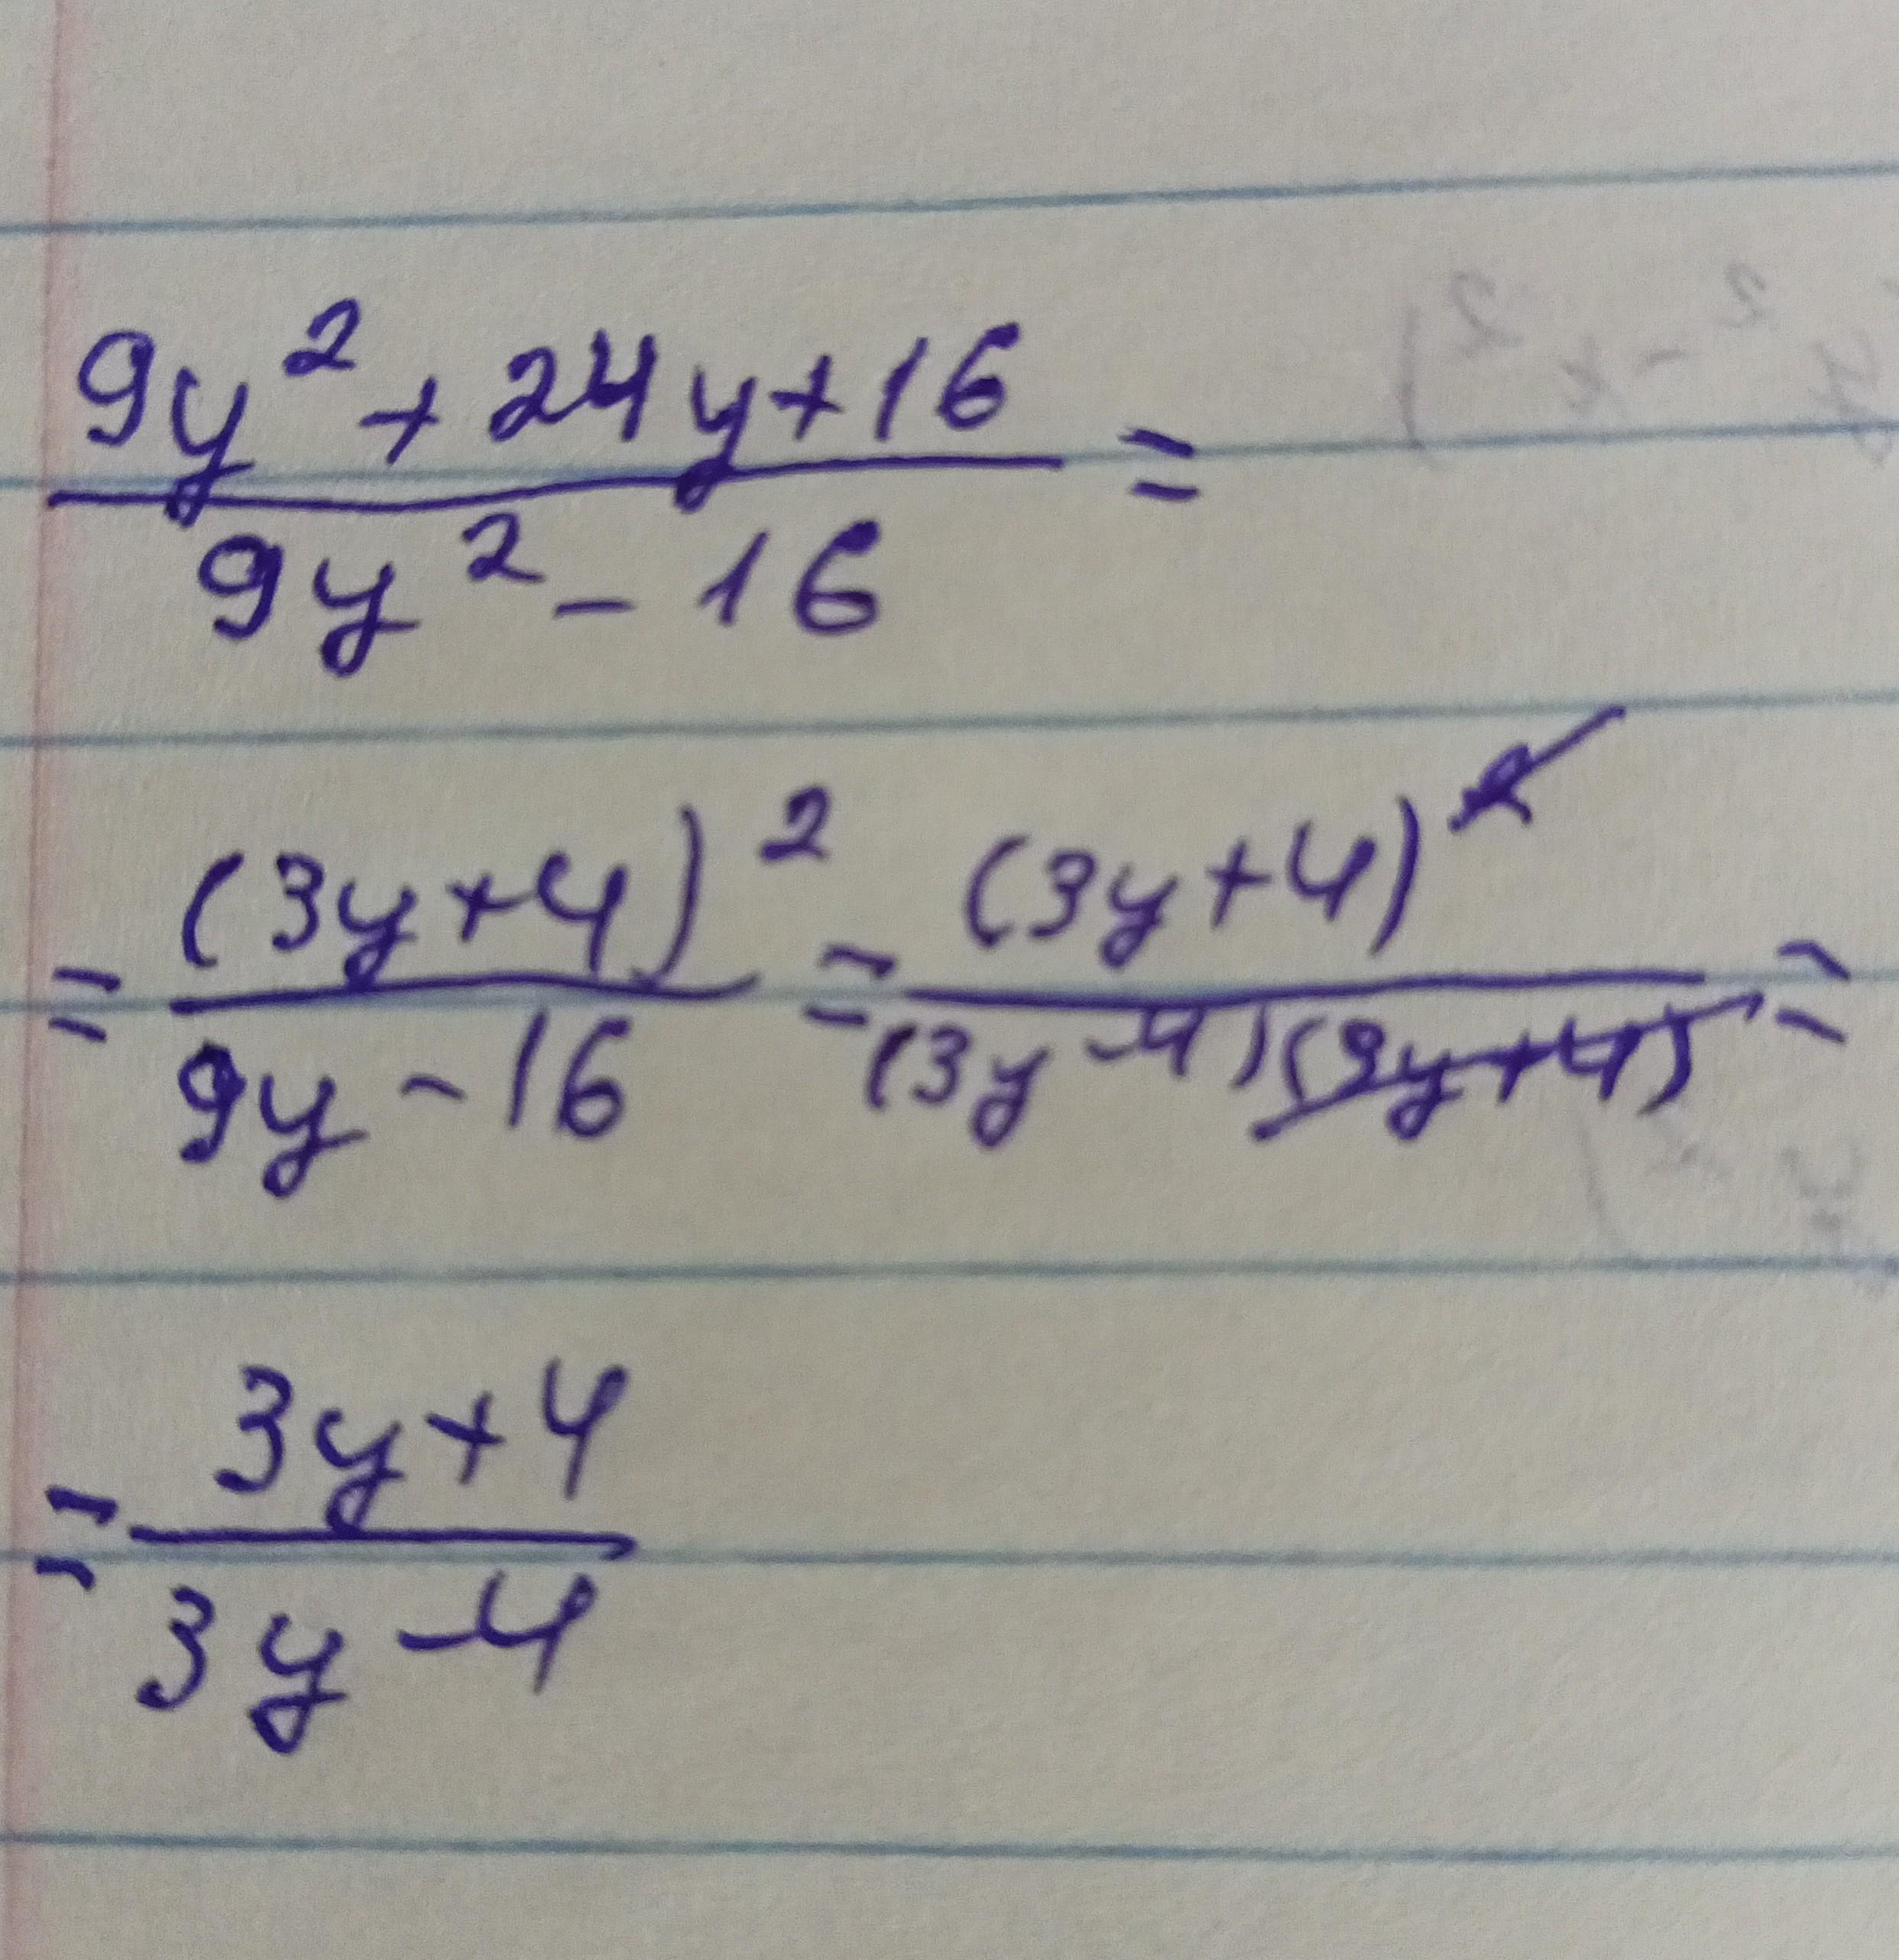 9y² + 24y + 16 =
9y² - 16
= (3y+4)² = (3y+4)² =
9y - 16 (3y-4)(3y+4)
= 3y+4
3y-4